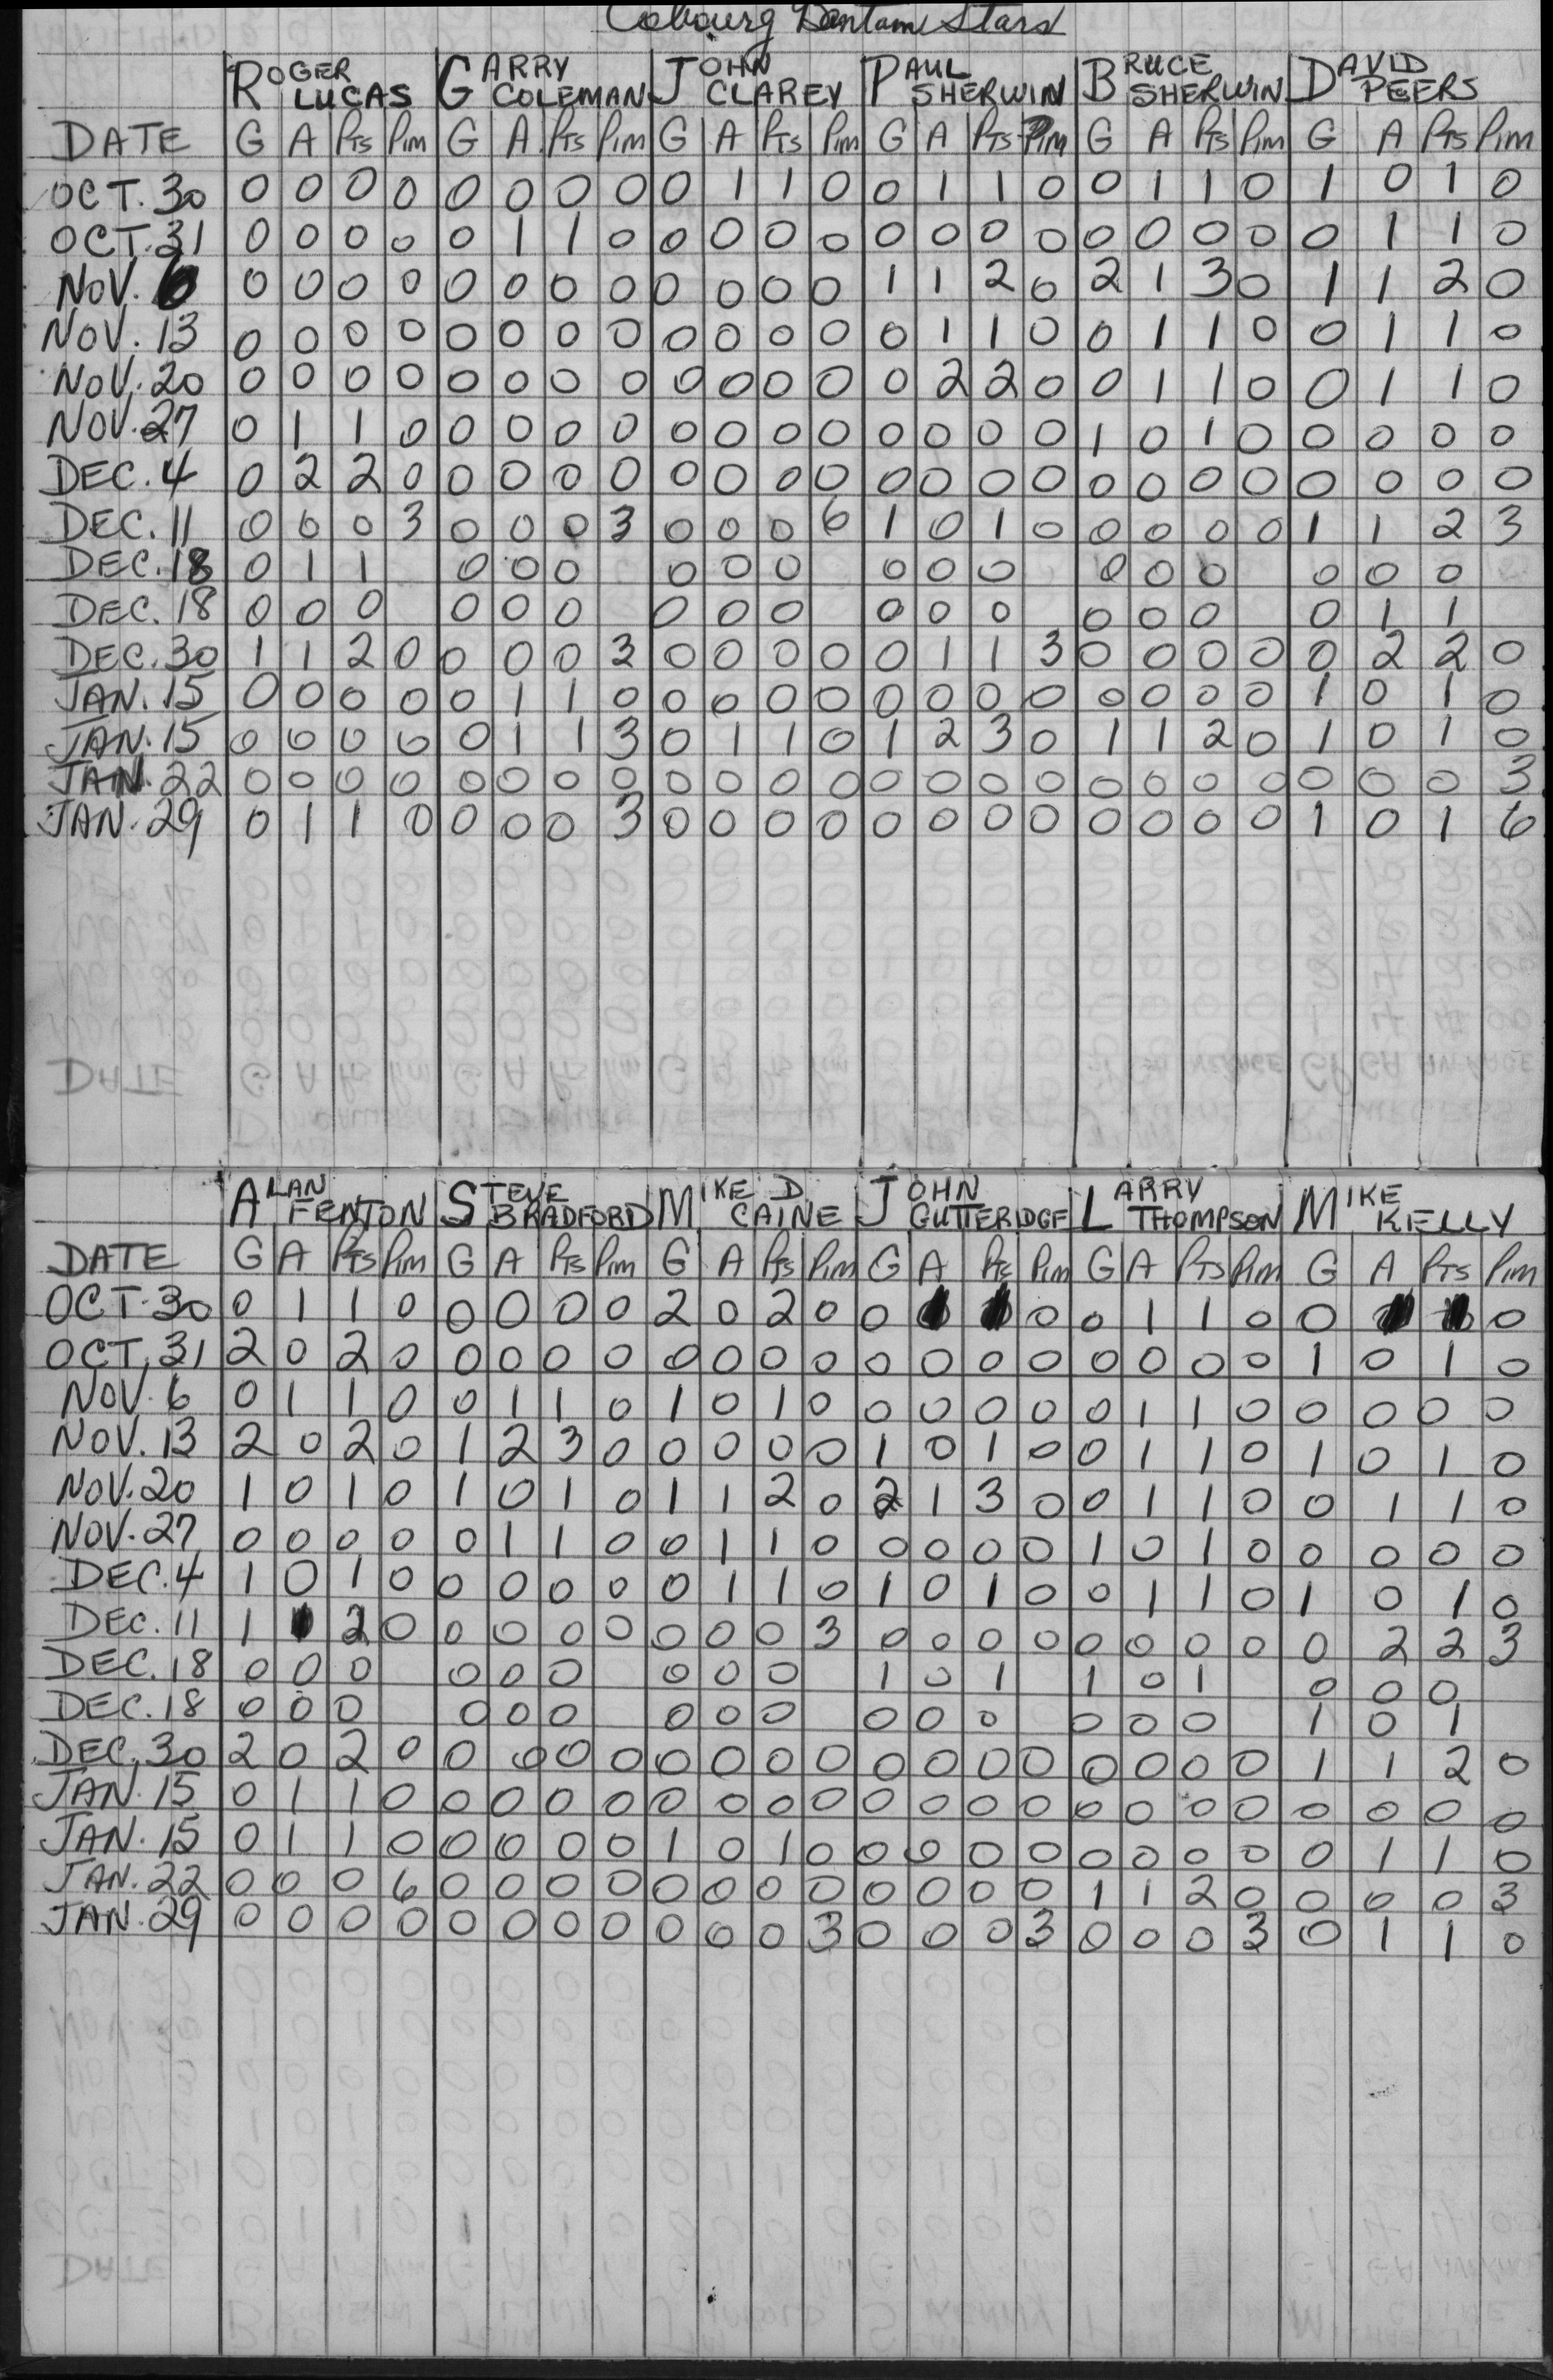 Cobourg Bantam Stars
ROGER LUCAS GARRY COLEMAN JOHN CLAREY PAUL SHERWIN BRUCE SHERWIN DAVID PEERS
DATE G A Pts Pim G A. Pts Pim G A Pts Pim G A Pts Pim G A Pts Pim G A Pts Pim
OCT. 30 0 0 0 0 0 0 0 0 0 1 1 0 0 1 1 0 0 1 1 0 1 0 1 0
OCT. 31 0 0 0 0 0 1 1 0 0 0 0 0 0 0 0 0 0 0 0 0 0 1 1 0
NOV. 6 0 0 0 0 0 0 0 0 0 0 0 0 1 1 2 0 2 1 3 0 1 1 2 0
NOV. 13 0 0 0 0 0 0 0 0 0 0 0 0 0 1 1 0 0 1 1 0 0 1 1 0
NOV. 20 0 0 0 0 0 0 0 0 0 0 0 0 0 2 2 0 0 1 1 0 0 1 1 0
NOV. 27 0 1 1 0 0 0 0 0 0 0 0 0 0 0 0 0 1 0 1 0 0 0 0 0
DEC. 4 0 2 2 0 0 0 0 0 0 0 0 0 0 0 0 0 0 0 0 0 0 0 0 0
DEC. 11 0 0 0 3 0 0 0 3 0 0 0 6 1 0 1 0 0 0 0 0 1 1 2 3
DEC. 18 0 1 1 0 0 0 0 0 0 0 0 0 0 0 0 0 0 0
DEC. 18 0 0 0 0 0 0 0 0 0 0 0 0 0 0 0 0 1 1
DEC. 30 1 1 2 0 0 0 0 3 0 0 0 0 0 1 1 3 0 0 0 0 0 2 2 0
JAN. 15 0 0 0 0 0 1 1 0 0 0 0 0 0 0 0 0 0 0 0 0 1 0 1 0
JAN. 15 0 0 0 0 0 1 1 3 0 1 1 0 1 2 3 0 1 1 2 0 1 0 1 0
JAN. 22 0 0 0 0 0 0 0 0 0 0 0 0 0 0 0 0 0 0 0 0 0 0 0 3
JAN. 29 0 1 1 0 0 0 0 3 0 0 0 0 0 0 0 0 0 0 0 0 1 0 1 6
ALAN FENTON STEVE BRADFORD MIKE D CAINE JOHN GUTTERIDGE LARRY THOMPSON MIKE KELLY
DATE G A Pts Pim G A Pts Pim G A Pts Pim G A Pts Pim G A Pts Pim G A Pts Pim
OCT. 30 0 1 1 0 0 0 0 0 2 0 2 0 0 0 0 1 1 0 0 0
OCT. 31 2 0 2 0 0 0 0 0 0 0 0 0 0 0 0 0 0 0 0 0 1 0 1 0
NOV. 6 0 1 1 0 0 1 1 0 1 0 1 0 0 0 0 0 0 1 1 0 0 0 0 0
NOV. 13 2 0 2 0 1 2 3 0 0 0 0 0 1 0 1 0 0 1 1 0 1 0 1 0
NOV. 20 1 0 1 0 1 0 1 0 1 1 2 0 2 1 3 0 0 1 1 0 0 1 1 0
NOV. 27 0 0 0 0 0 1 1 0 0 1 1 0 0 0 0 0 1 0 1 0 0 0 0 0
DEC. 4 1 0 1 0 0 0 0 0 0 1 1 0 1 0 1 0 0 1 1 0 1 0 1 0
DEC. 11 1 1 2 0 0 0 0 0 0 0 0 3 0 0 0 0 0 0 0 0 0 2 2 3
DEC. 18 0 0 0 0 0 0 0 0 0 1 0 1 1 0 1 0 0 0
DEC. 18 0 0 0 0 0 0 0 0 0 0 0 0 0 0 0 1 0 1
DEC. 30 2 0 2 0 0 0 0 0 0 0 0 0 0 0 0 0 0 0 0 0 1 1 2 0
JAN. 15 0 1 1 0 0 0 0 0 0 0 0 0 0 0 0 0 0 0 0 0 0 0 0 0
JAN. 15 0 1 1 0 0 0 0 0 1 0 1 0 0 0 0 0 0 0 0 0 0 1 1 0
JAN. 22 0 0 0 6 0 0 0 0 0 0 0 0 0 0 0 0 1 1 2 0 0 0 0 3
JAN. 29 0 0 0 0 0 0 0 0 0 0 0 3 0 0 0 3 0 0 0 3 0 1 1 0